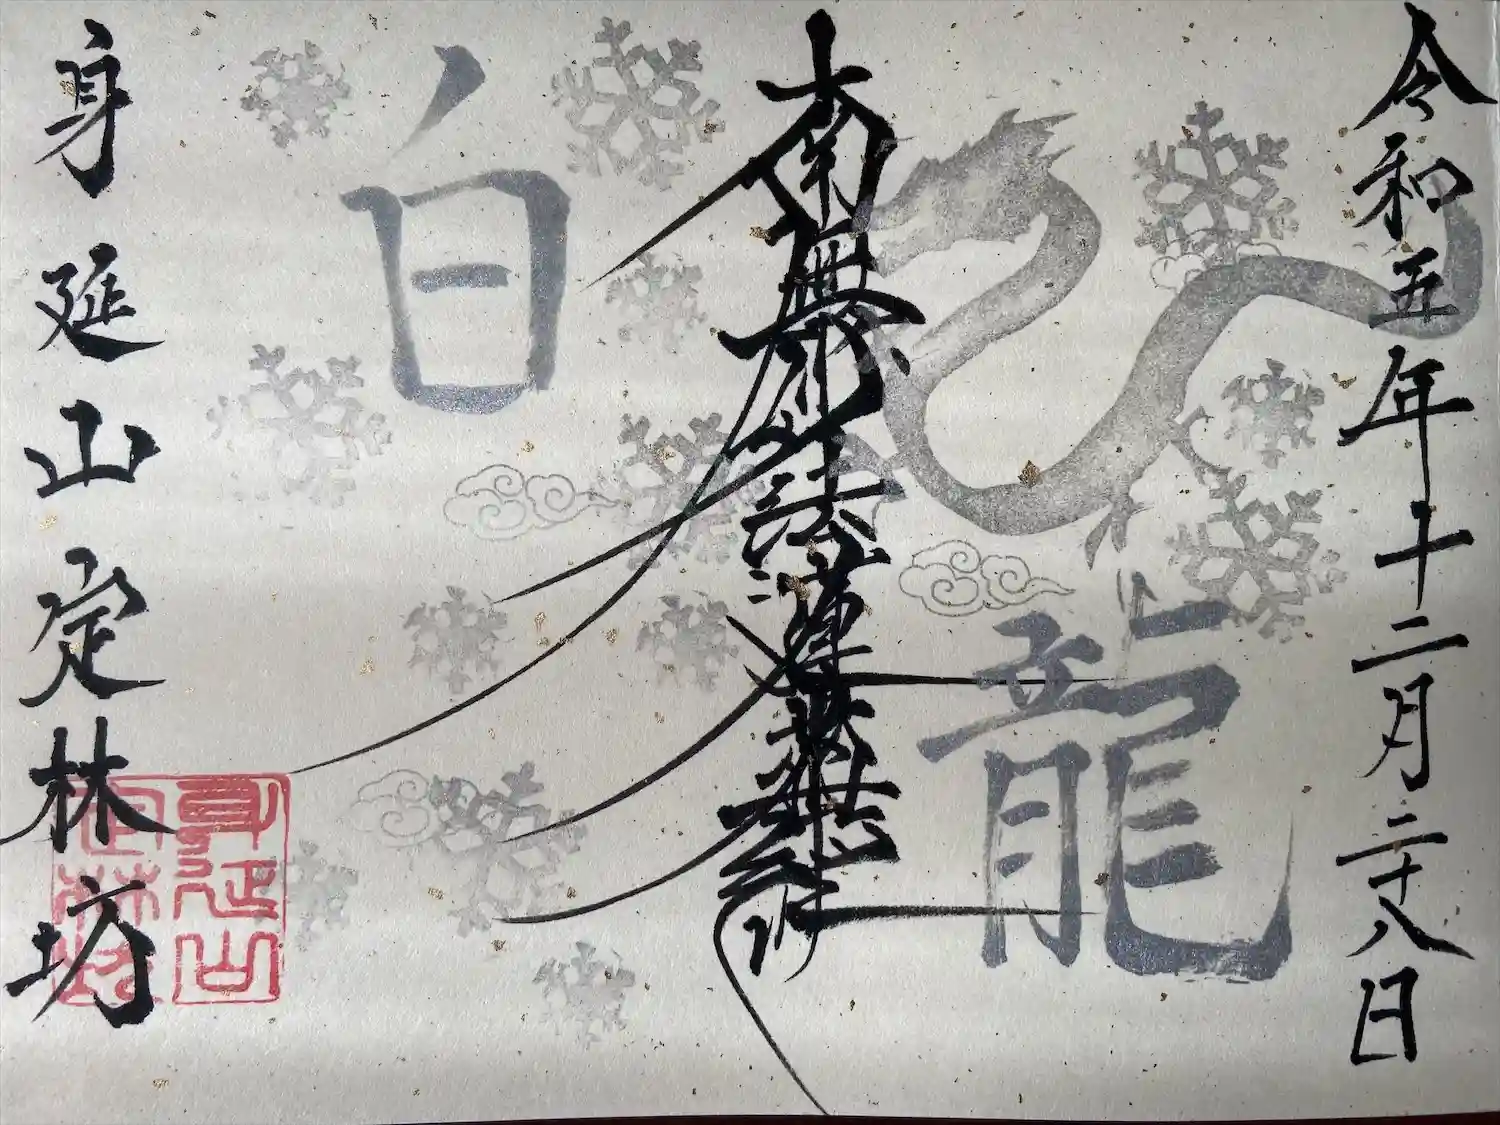 令和五年十二月二十八日
龍
南無妙法蓮華経
白
身延山定林坊
身延山
定林坊